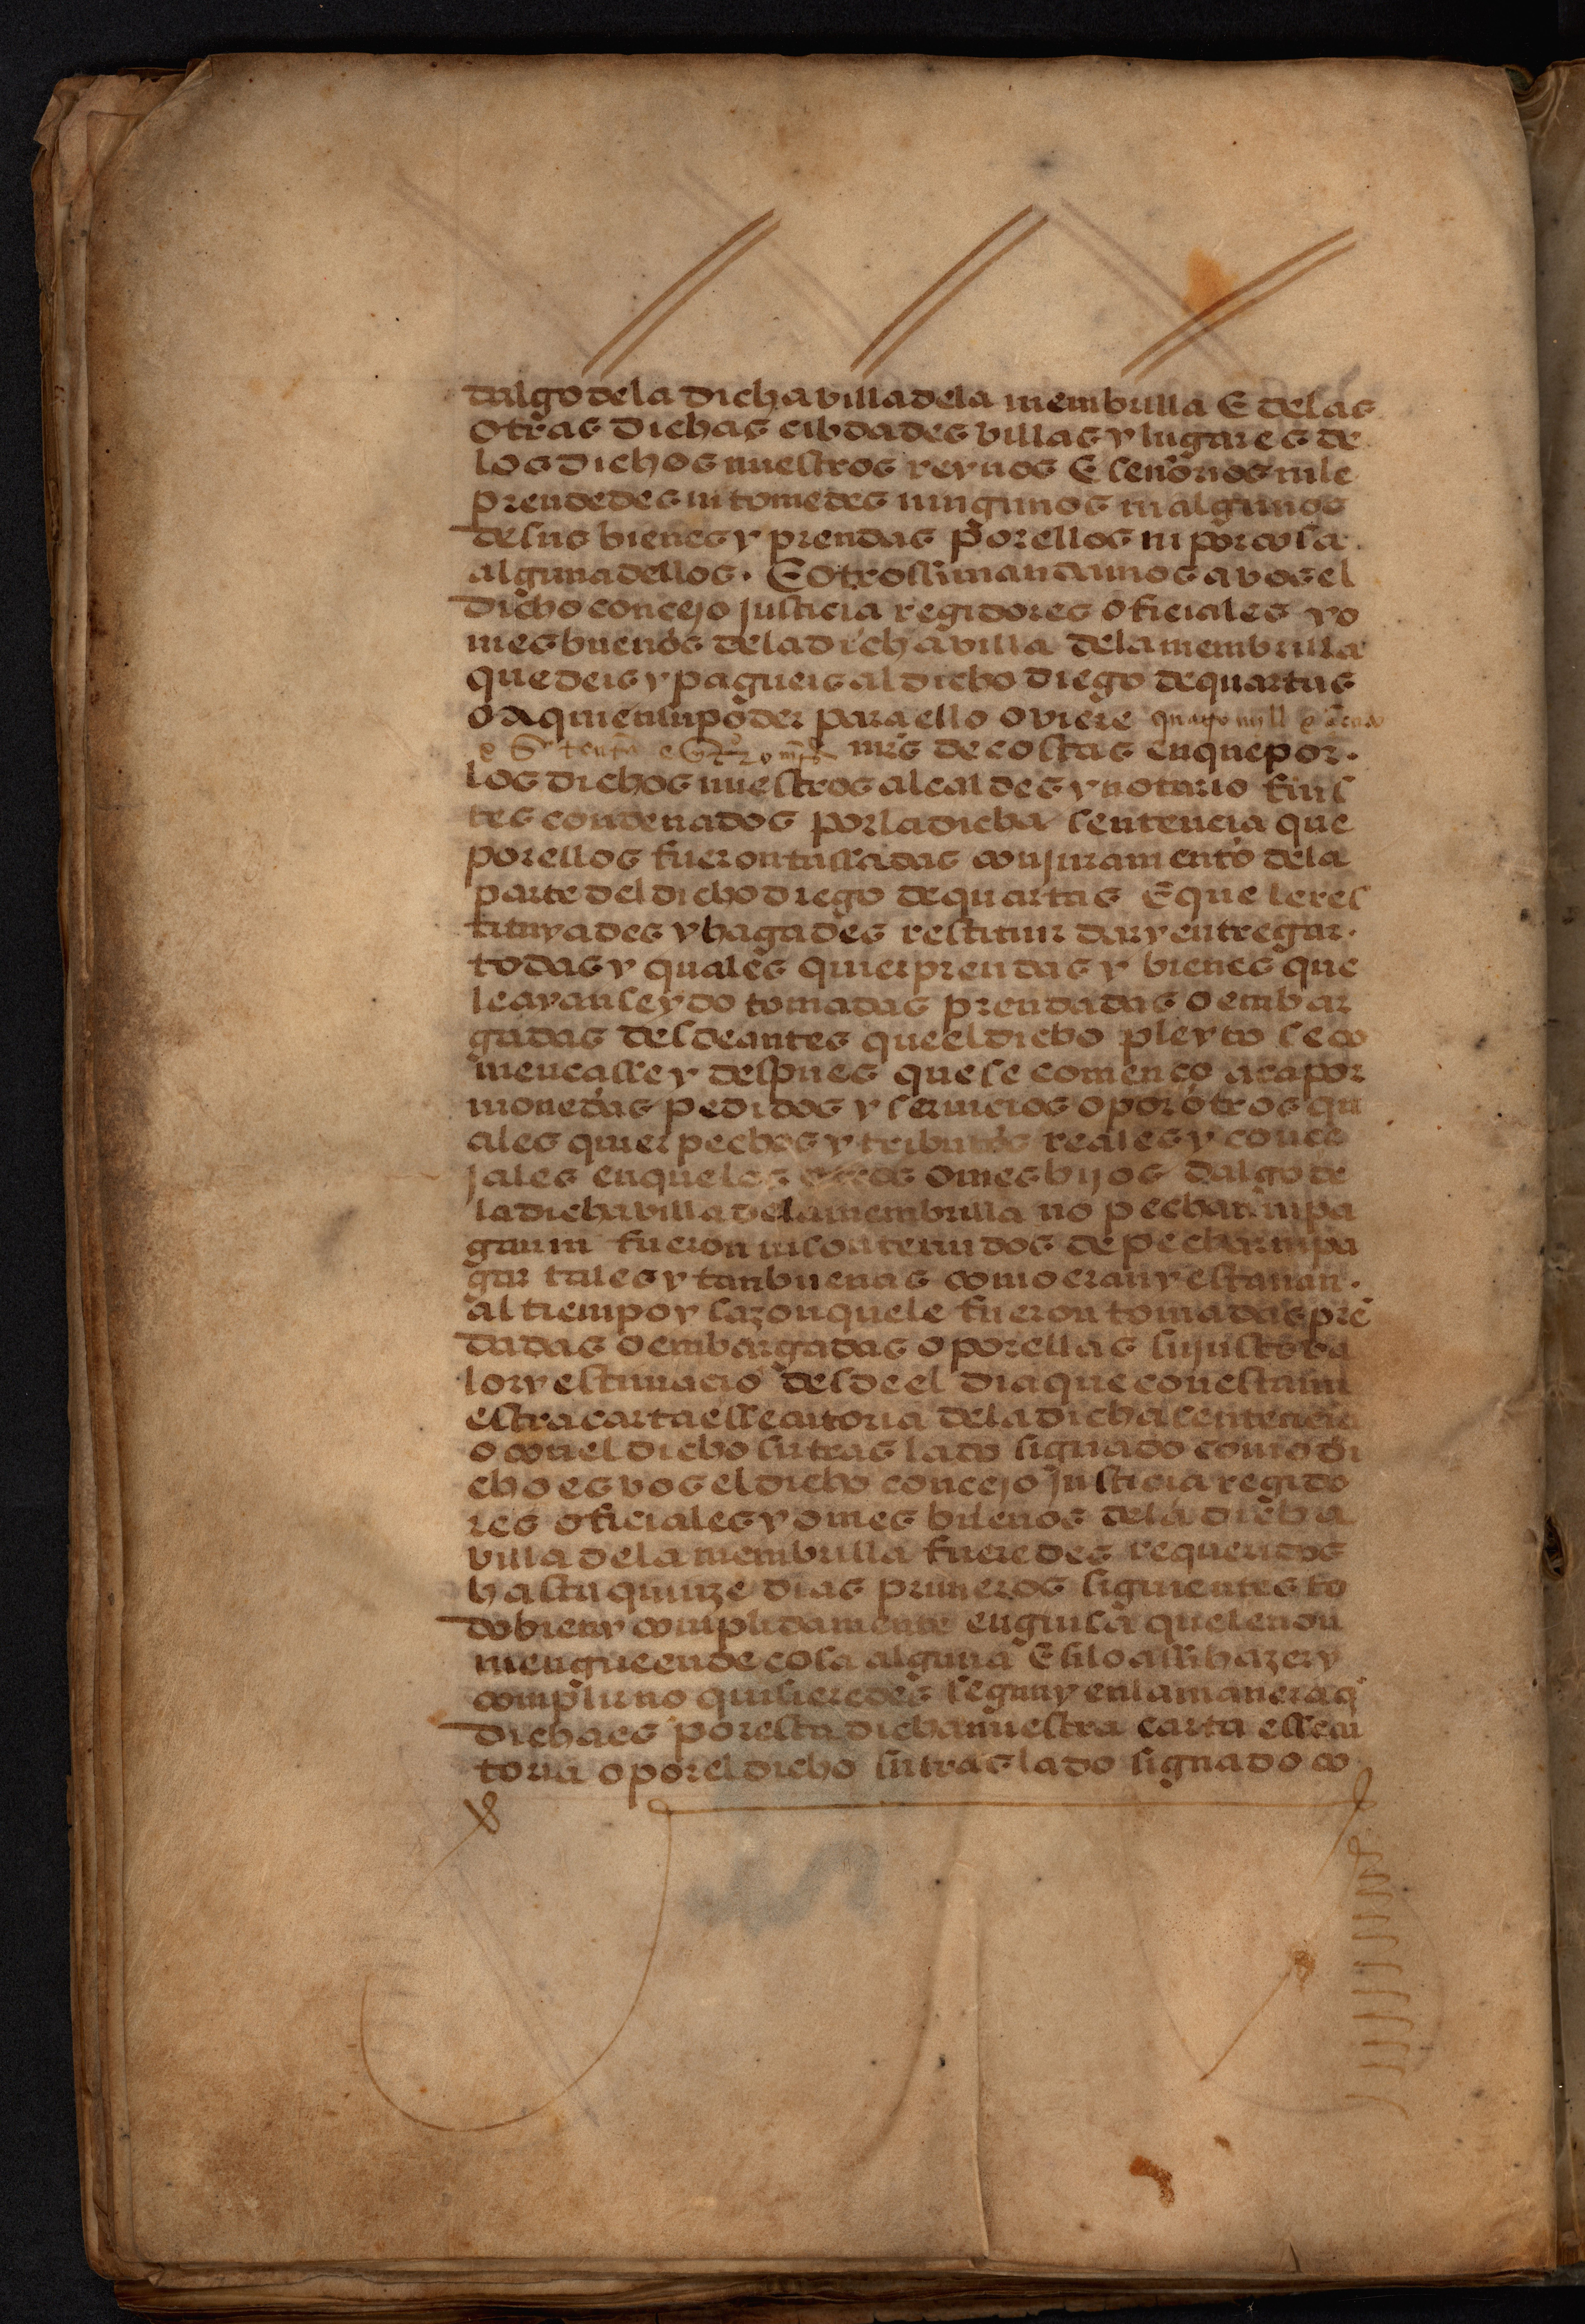 dalgo dela dicha villa dela membrilla E delas
otras dichas cibdades villas y lugares de
los dichos nuestros reynos E señorios ni le
prendedes ni tomedes ningunos ni algunos
de sus bienes y prendas por ellos ni por cosa
alguna dellos. E otrossi mandamos a vos el
dicho concejo justicia regidores oficiales y o
mes buenos dela dicha villa dela membrilla
que deis y pagueis al dicho diego de quartas
o a quien su poder para ello oviere quatro mill e
mrs de costas en que por
los dichos nuestros alcaldes y notario fuis
tes condenados por la dicha sentencia que
por ellos fueron tassadas con juramento dela
parte del dicho diego de quartas E que le res
tituyades y hagades restituir dar y entregar
todas y quales quier prendas y bienes que
le ayan seydo tomadas prendadas o embar
gadas desde antes que el dicho pleyto se co
mencasse y despues que se començo aca por
monedas pedidos y servicios o por otros qu
ales quier pechos y tributos reales y conce
jales en que los otros omes hijos dalgo de
la dicha villa dela membrilla no pechan ni pa
gan ni fueron ni son tenudos de pechar ni pa
gar tales y tan buenas como eran y estavan
al tiempo y sazon que le fueron tomadas prē
dadas o embargadas o por ellas su justo va
lor y estimacio desde el dia que con esta nu
estra carta essecutoria dela dicha sentencia
o con el dicho su traslado signado como di
cho es vos el dicho concejo justicia regido
res oficiales y omes buenos dela dicha
villa dela membrilla fueredes requeridos
hasta quinze dias primeros siguientes to
do bien y complidamente en guisa que le non
mengue ende cosa alguna E si lo assi hazer y
complir no quisieredes segun y en la manera q
dicha es por esta dicha nuestra carta essecu
toria o por el dicho su traslado signado co